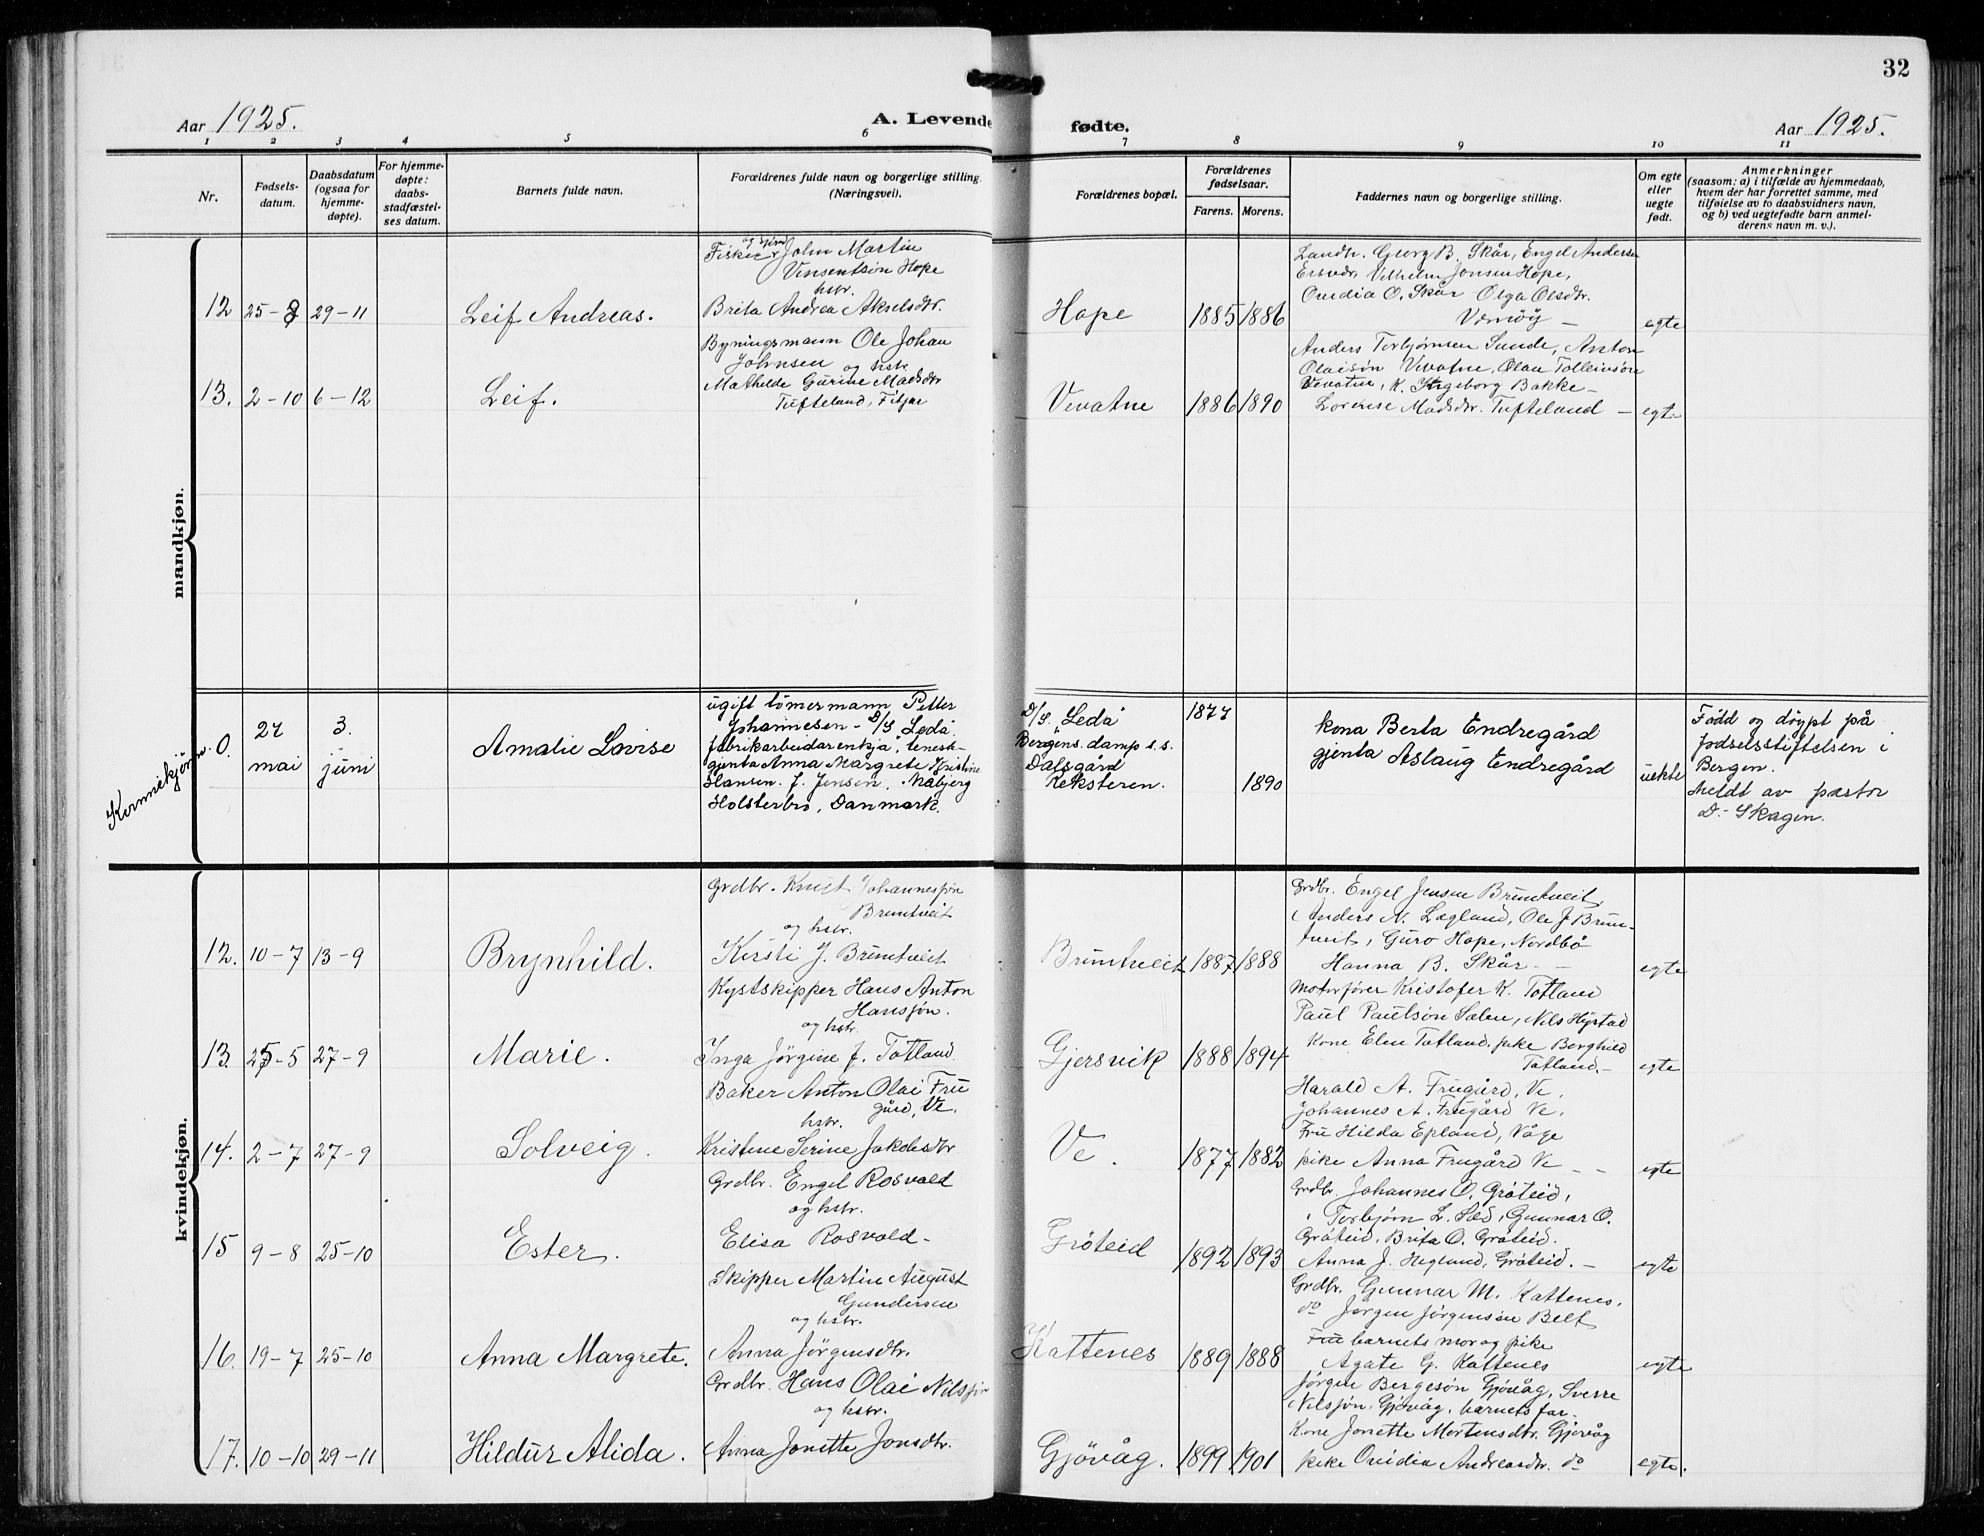 32
Aar 1925.
A. Levende fødte.
Aar 1925.
1 2 3 4 5 6 7 8 9 10 11
Nr.
Fødsels-
datum.
Daabsdatum
(ogsaa for
hjemme-
døpte).
For hjemme-
døpte:
daabs-
stadfæstel-
ses datum.
Barnets fulde navn.
Forældrenes fulde navn og borgerlige stilling.
(Næringsvei).
Forældrenes bopæl.
Forældrenes
fødselsaar.
Farens. Morens.
Faddernes navn og borgerlige stilling.
Om egte
eller
uegte
født.
Anmerkninger
(saasom: a) i tilfælde av hjemmedaab,
hvem der har forrettet samme, med
tilføielse av to daabsvidners navn,
og b) ved uegtefødte barn anmel-
derens navn m. v.).
mandkjøn.
12 25-8 29-11
Leif Andreas.
Fisker John Martin
Vinsentsön Hope
hstr.
Brita Andrea Akselsdtr.
Hope
1885 1886
Landh. Georg B. Skår, Engel Andersen
Vilhelm Jonsen Hope,
Ovidia O. Skår Olga Olsdtr.
Vernöy —
egte
13. 2-10 6-12
Leif.
Byningsmann Ole Johan
Johnsen og hstr.
Mathilde Gurine Madsdtr
Tufteland, Fitjar
Vevatne
1886 1890
Anders Torbjørnsen Sunde, Anton
Olaisön Vevatne, Olav Tolleivsön
Vevatne, K. Ingeborg Bakke -
Lovise Madsdtr. Tufteland —
egte
Kvinnekjønn.
0. 27 mai 3. juni
Amalie Lovise
ugift tömermann Petter
Johannesen - D/S Leda.
fabrikarbeidarenkja, tenest-
gjenta Anna Margrete Kristine
Hansen f. Jensen, Måbjerg
Holsterbro, Danmark.
D/S. Leda
Bergens. damp s.s.
Dalsgård
Reksteren.
1877
1890
kona Berta Endregård
gjenta Aslaug Endregård
uekte
Född og döypt på
fødselsstiftelsen i
Bergen.
Meldt av pastor
D. Skagen.
kvindekjøn.
12. 10-7 13-9
Brynhild.
Grdbr. Knut Johannessön
Bruntveit
og hstr.
Kirsti J. Bruntveit
Bruntveit
1887 1888
Grdbr. Engel Jensen Bruntveit,
Anders N. Lægland, Ole J. Brun-
tveit, Guro Hope, Nordbö
Hanna B. Skår - -
egte
13. 25-5 27-9
Marie.
Kystskipper Hans Anton
Hansjön.
og hstr.
Inga Jörgine f. Totland.
Gjersvik
1888 1894
Motorförer Kristofer K. Totland
Paul Paulsön Salen, Nils Høystad
Kone Elen Totland, pike Borghild
Totland. -
egte
14. 2-7 27-9
Solveig.
Baker Anton Olai Fru
gård, Ve.
hstr.
Kristine Serine Jakobsdtr
Ve.
1877 1882
Harald A. Frugård, Ve.
Johannes A. Frugård Ve.
Fru Hilda Epland, Våge
pike Anna Frugård Ve - -
egte
15 9-8 25-10
Ester.
Grdbr. Engel Rosvold
og hstr.
Elisa Rosvold -
Gröteid
1892 1893
Grdbr. Johannes O. Gröteid,
Torbjørn L. Sæd, Gunnar O.
Gröteid, Brita O. Gröteid.
Anna J. Hegland, Gröteid. -
egte
16. 19-7 25-10
Anna Margrete.
Skipper Martin August
Gundersen
og hstr.
Anna Jörgensdtr.
Kattenes
1889 1888
Grdbr. Gunnar M. Kattenes,
do Jørgen Jørgensön Belt
Fru barnets mor og pike
Agate G. Kattenes
egte
17. 10-10 29-11
Hildur Alida.
Grdbr. Hans Olai Nilsjön
og hstr.
Anna Jonette Jonsdtr.
Gjövåg.
1899 1901
Jörgen Bergesön Gjövåg, Sverre
Nilsjön, Gjövåg, barnets far -
Kone Jonette Mortensdtr. Gjövåg
pike Ovidia Andreasdtr. do
egte.